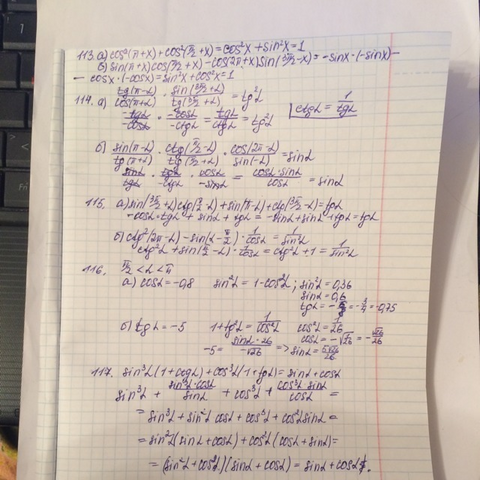 113. а) cos²(π+x)+cos²(π/2+x)=cos²x+sin²x=1
в) sin(π+x)cos(π/2+x)-cos(2π+x)sin(3π/2-x)=-sinx·(-sinx)-
-cosx·(-cosx)=sin²x+cos²x=1
114. а) tg(π-α)/cos(π+α) · sin(3π/2+α)/tg(3π/2+α) = tg²α
-tgα/-cosα · -cosα/-ctgα = tgα/ctgα = tg²α
ctgα = 1/tgα
б) sin(π-α)/tg(π+α) · ctg(π/2-α)/tg(π/2+α) · cos(2π-α)/sin(-α) = sinα
sinα/tgα · tgα/-ctgα · cosα/-sinα = cosα·sinα/cosα = sinα
115. а) sin(3π/2+α)ctg(π/2-α)+sin(π-α)+ctg(3π/2-α)=tgα
-cosα·tgα+sinα+tgα=-sinα+sinα+tgα=tgα
б) ctg²(2π-α)-sin(α-π/2)·1/cosα=1/sin²α
ctg²α+sin(π/2-α)·1/cosα=ctg²α+1=1/sin²α
116. π/2<α<π
а) cosα=-0,8 sin²α=1-cos²α; sin²α=0,36
sinα=0,6
tgα=-6/8=-3/4=-0,75
б) tgα=-5 1+tg²α=1/cos²α cos²α=1/26
cosα=-√1/26=-√26/26
-5=sinα·26/-√26 => sinα=5√26/26
117. sin³α(1+ctgα)+cos³α(1+tgα)=sinα+cosα
sin³α+sin³α·cosα/sinα+cos³α+cos³α·sinα/cosα=
=sin³α+sin²α cosα+cos³α+cos²α sinα=
=sin²α(sinα+cosα)+cos²α(cosα+sinα)=
=(sin²α+cos²α)(sinα+cosα)=sinα+cosα.